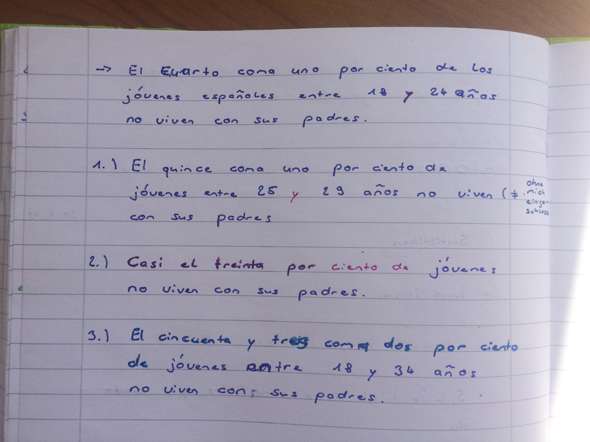 → El Euarto coma uno por ciento de los
jóvenes españoles entre 18 y 24 años
no viven con sus padres.
1.) El quince coma uno por ciento de
jóvenes entre 25 y 29 años no viven (≠ ohne mich
con sus padres
2.) Casi el treinta por ciento de jóvenes
no viven con sus padres.
3.) El cincuenta y tres coma dos por ciento
de jóvenes entre 18 y 34 años
no viven con sus padres.